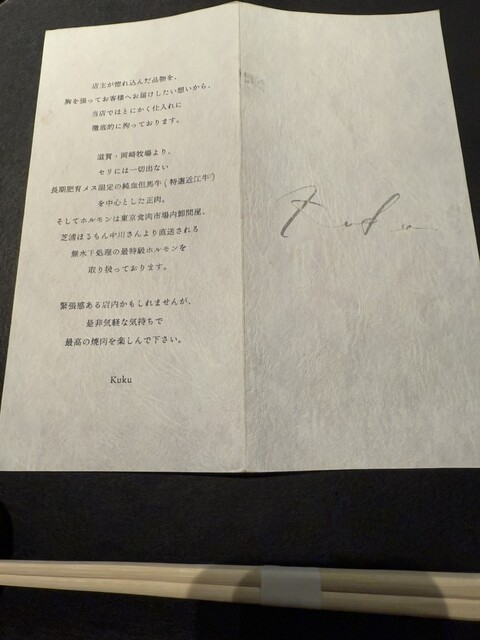 店主が惚れ込んだ品物を、
胸を張ってお客様へお届けしたい想いから、
当店ではとにかく仕入れに
徹底的に拘っております。
滋賀・岡崎牧場より、
セリには一切出ない
長期肥育メス限定の純血但馬牛(特選近江牛)
を中心とした正肉。
そしてホルモンは東京食肉市場内卸問屋、
芝浦ほるもん中川さんより直送される
無水下処理の最特級ホルモンを
取り扱っております。
緊張感ある店内かもしれませんが、
是非気軽な気持ちで
最高の焼肉を楽しんで下さい。
Kuku